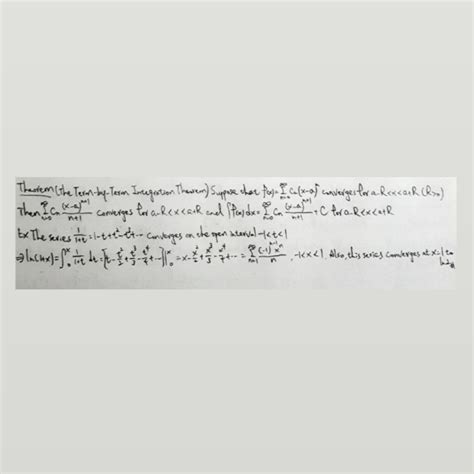 Theorem (The Term-by-Term Integration Theorem) Suppose that f(x)=∑_{n=0}^{∞} C_n(x-a)^n converges for a-R<x<a+R (R>0)
Then ∑_{n=0}^{∞} C_n (x-a)^{n+1}/(n+1) converges for a-R<x<a+R and ∫f(x)dx=∑_{n=0}^{∞} C_n (x-a)^{n+1}/(n+1) + C for a-R<x<a+R
Ex The series 1/(1+t)=1-t+t²-t³+⋯ converges on the open interval -1<t<1
⇒ ln(1+x)=∫_0^x 1/(1+t) dt=[t-t²/2+t³/3-t⁴/4+⋯]|_0^x=x-x²/2+x³/3-x⁴/4+⋯=∑_{n=1}^{∞} (-1)^{n-1}x^n/n, -1<x<1. Also, this series converges at x=1 to
ln2